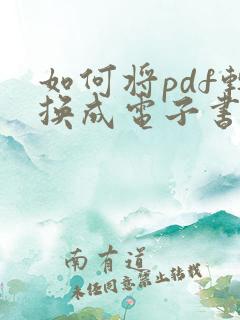 如何将pdf转
换成电子书
南有道
未经同意禁止转载